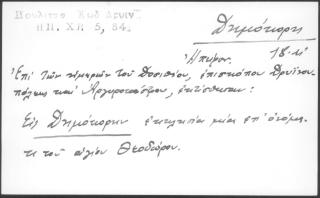 Πουλίτσα Κωδ. Δρυϊν.
Η.Π. ΧΡ. 5, 84.
Δημόκορη
Ήπειρον. 18. αι
Ἐπί τῶν ἡμερῶν τοῦ Δοσιθέου, ἐπισκόπου Δρυϊνου
πόλεως καί Ἀργυροκάστρου, ἐκτίσθησαν:
Εἰς Δημόκορην ἐκκλησία μία ἐπ' ὀνόμα-
τι τοῦ ἁγίου Θεοδώρου.